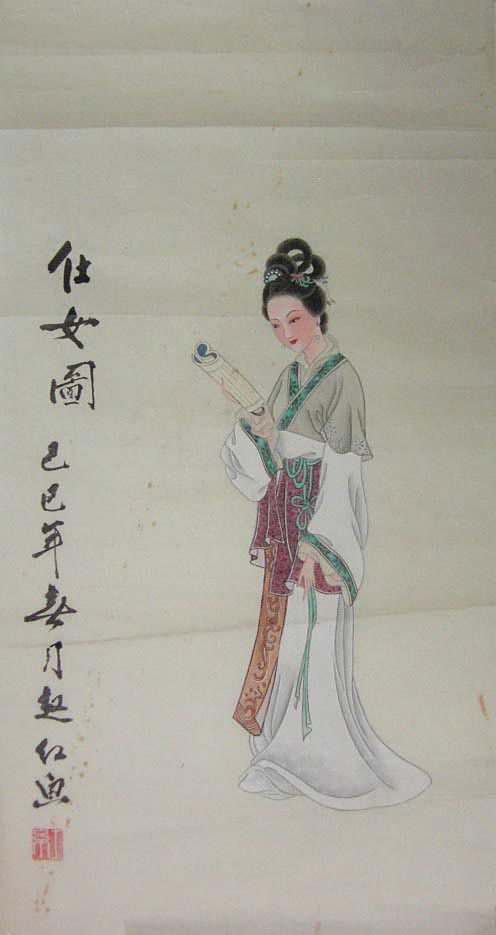 仕女图
己巳年春月赵红画